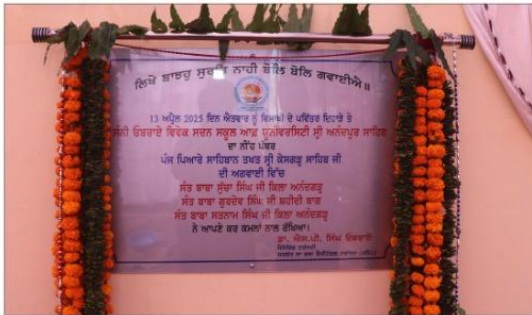 ਲਿਖੇ ਬਾਝਹੁ ਸੁਰਤਿ ਨਾਹੀ ਬੋਲਿ ਬੋਲਿ ਗਵਾਈਐ॥
13 ਅਪ੍ਰੈਲ 2025 ਦਿਨ ਐਤਵਾਰ ਨੂੰ ਵਿਸਾਖੀ ਦੇ ਪਵਿੱਤਰ ਦਿਹਾੜੇ ਤੇ
ਸੰਨੀ ਓਬਰਾਏ ਵਿਵੇਕ ਸਦਨ ਸਕੂਲ ਆਫ਼ ਯੂਨੀਵਰਸਿਟੀ ਸ੍ਰੀ ਅਨੰਦਪੁਰ ਸਾਹਿਬ
ਦਾ ਨੀਂਹ ਪੱਥਰ
ਪੰਜ ਪਿਆਰੇ ਸਾਹਿਬਾਨ ਤਖਤ ਸ੍ਰੀ ਕੇਸਗੜ੍ਹ ਸਾਹਿਬ ਜੀ
ਦੀ ਅਗਵਾਈ ਵਿੱਚ
ਸੰਤ ਬਾਬਾ ਸੁੱਚਾ ਸਿੰਘ ਜੀ ਕਿਲਾ ਅਨੰਦਗੜ੍ਹ
ਸੰਤ ਬਾਬਾ ਗੁਰਦੇਵ ਸਿੰਘ ਜੀ ਸ਼ਹੀਦੀ ਬਾਗ
ਸੰਤ ਬਾਬਾ ਸਤਨਾਮ ਸਿੰਘ ਜੀ ਕਿਲਾ ਅਨੰਦਗੜ੍ਹ
ਨੇ ਆਪਣੇ ਕਰ ਕਮਲਾਂ ਨਾਲ ਰੱਖਿਆ।
ਡਾ. ਐਸ.ਪੀ. ਸਿੰਘ ਓਬਰਾਏ
ਮੈਨੇਜਿੰਗ ਟਰੱਸਟੀ
ਸਰਬੱਤ ਦਾ ਭਲਾ ਚੈਰੀਟੇਬਲ ਟਰੱਸਟ (ਰਜਿ:)